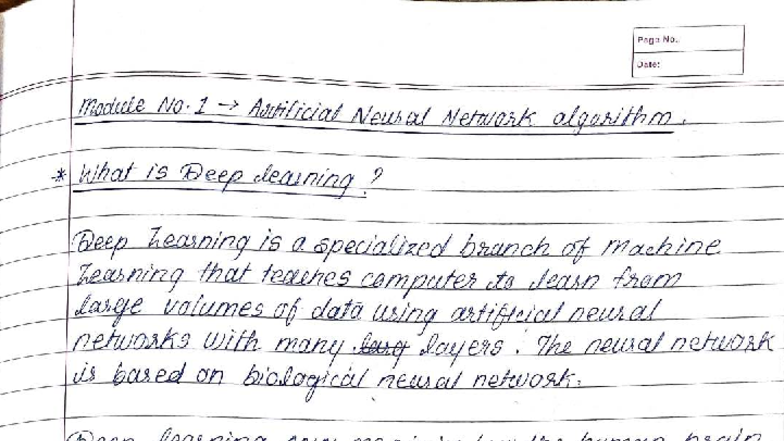 Page No.
Date:
Module No. 1 → Artificial Neural Network algorithm.
* What is Deep learning ?
Deep Learning is a specialized branch of machine
Learning that teaches computer to learn from
large volumes of data using artificial neural
networks with many layers. The neural network
is based on biological neural network.
Deep learning the human brain